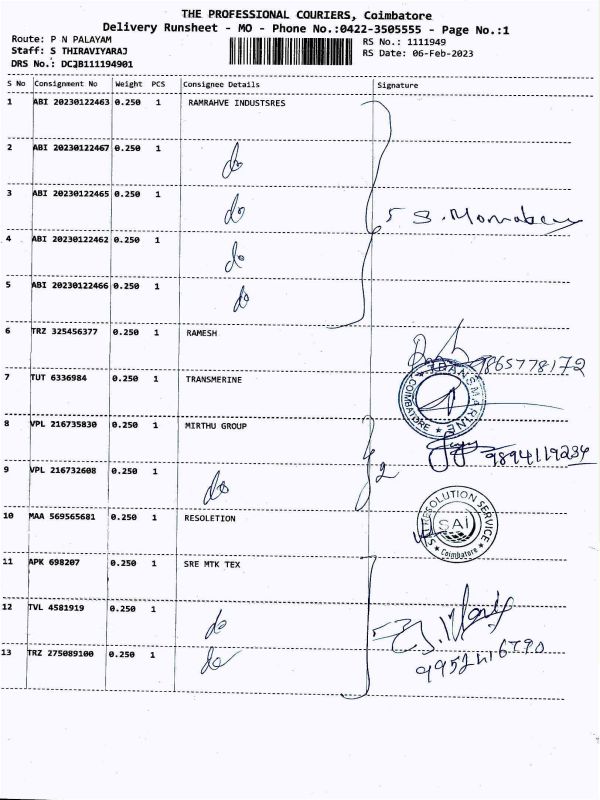 THE PROFESSIONAL COURIERS, Coimbatore
Delivery Runsheet - MO - Phone No.:0422-3505555 - Page No.:1
Route: P N PALAYAM
Staff: S THIRAVIYARAJ
DRS No.: DCJB111194901
RS No.: 1111949
RS Date: 06-Feb-2023
S No Consignment No Weight PCS Consignee Details Signature
1 ABI 20230122463 0.250 1 RAMRAHVE INDUSTSRES
2 ABI 20230122467 0.250 1 do
3 ABI 20230122465 0.250 1 do
5
4 ABI 20230122462 0.250 1 do
5 ABI 20230122466 0.250 1 do
6 TRZ 325456377 0.250 1 RAMESH
9865778172
7 TUT 6336984 0.250 1 TRANSMERINE
TRANSMARINE COIMBATORE
8 VPL 216735830 0.250 1 MIRTHU GROUP
9894119234
9 VPL 216732608 0.250 1 do
2
10 MAA 569565681 0.250 1 RESOLETION
SAI RESOLUTION SERVICE
SAI
Coimbatore
11 APK 698207 0.250 1 SRE MTK TEX
12 TVL 4581919 0.250 1 do
13 TRZ 275089100 0.250 1 do